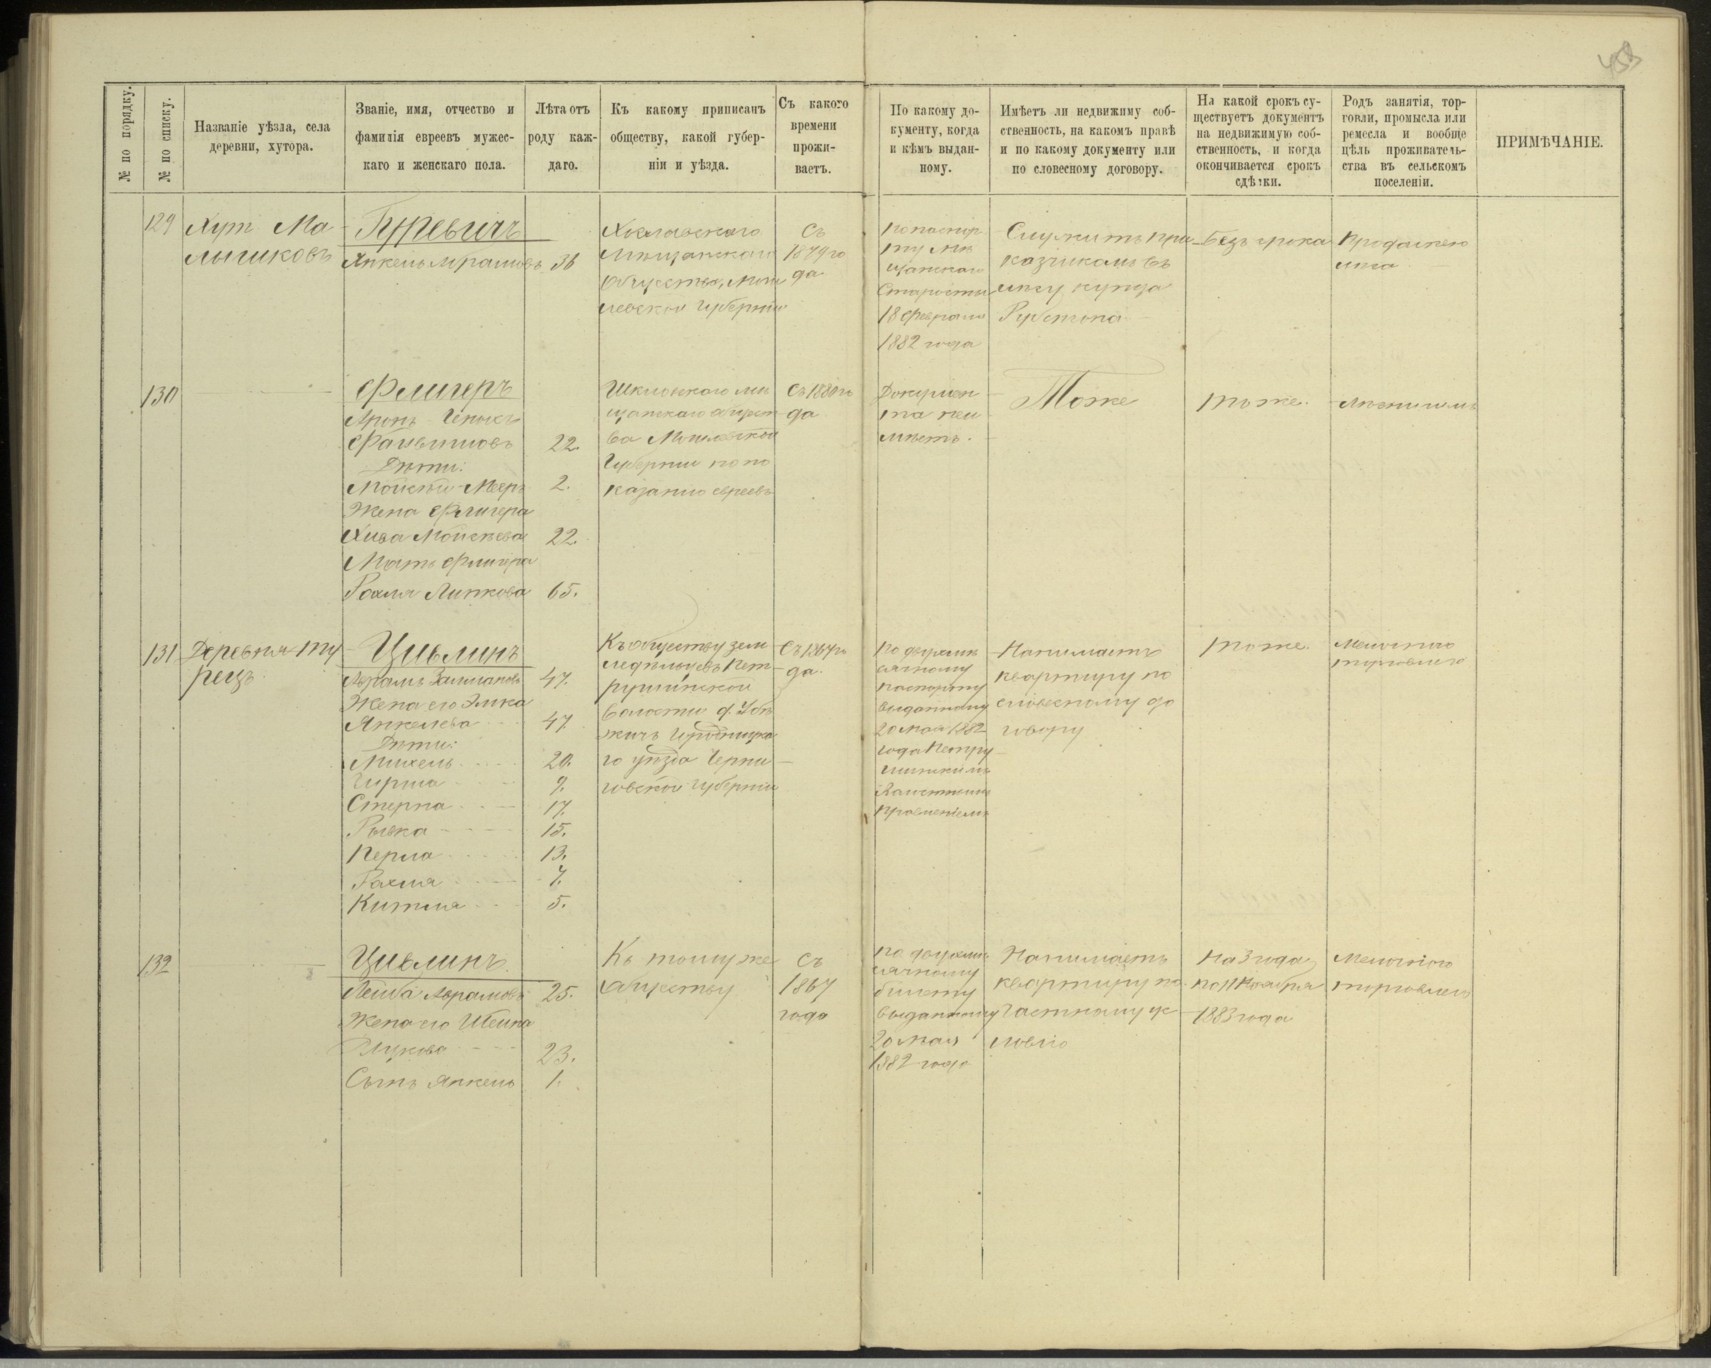 453
№ по порядку.
№ по списку.
Названіе уѣзда, села
деревни, хутора.
Званіе, имя, отчество и
фамилія евреевъ мужес-
каго и женскаго пола.
Лѣта отъ
роду каж-
даго.
Къ какому приписанъ
обществу, какой губер-
ніи и уѣзда.
Съ какого
времени
прожи-
ваетъ.
По какому до-
кументу, когда
и кѣмъ выдан-
ному.
Имѣетъ ли недвижиму соб-
ственность, на какомъ правѣ
и по какому документу или
по словесному договору.
На какой срокъ су-
ществуетъ документъ
на недвижимую соб-
ственность, и когда
окончивается срокъ
сдѣлки.
Родъ занятія, тор-
говли, промысла или
ремесла и вообще
цѣль проживатель-
ства въ сельскомъ
поселеніи.
ПРИМѢЧАНІЕ.
129
Хут Ма
лышковъ
Гуревичъ
Янкель 36
Мѣщанскаго
Общества, Моги
левской Губерніи
Съ
1879 го
да
по паспор
ту Мѣ
щанскаго
Старосты
18 Февраля
1882 года
Служитъ при
казчикомъ въ
лѣсу купца
Рубина
Безъ срока
Продажею
лѣса
130
Флигеръ
Аронъ
22.
Дѣти:
Мойсей-Меер 2.
Жена Флигера
Хива Мойсеева 22
Мать Флигера
Рохля Липкова 65.
Шкловскаго мѣ
щанскаго общест
ва Могилевской
Губерніи по по
казанію евреевъ
да
Докумен
та не и
мѣетъ.
Тоже
тоже.
131
Деревня Ту
рецъ
Цивлинъ
Абрамъ Залмановъ 47.
Жена его Элька
Янкелева 47
Дѣти:
Михель 20.
Гирша 9.
Стерна 17.
Рывка 15.
Перла 13.
Рахля 7.
Китля 5.
Къ обществу зем
ледѣльцевъ Пет
рушинской
Волости
Городницка
го уѣзда Черни
говской Губерніи
Съ 1867 го
да.
по двухмѣ
сячному
паспорту
выданному
20 мая 1882
года Петру
шинскимъ
Волостнымъ
Правленіемъ
Нанимаетъ
квартиру по
словесному до
говору
тоже.
Мелочною
торговлею
132
Цивлинъ
Лейба Абрамовъ 25.
Жена его Шейна
23.
Сынъ Янкель 1.
Къ тому же
обществу
Съ
1867
года
по двухмѣ
сячному
билету
выданному
20 мая
1882 года
Нанимаетъ
квартиру по
частному ус
ловію
На 3 года
по 11 Ноября
1883 года
Мелочною
торговлею